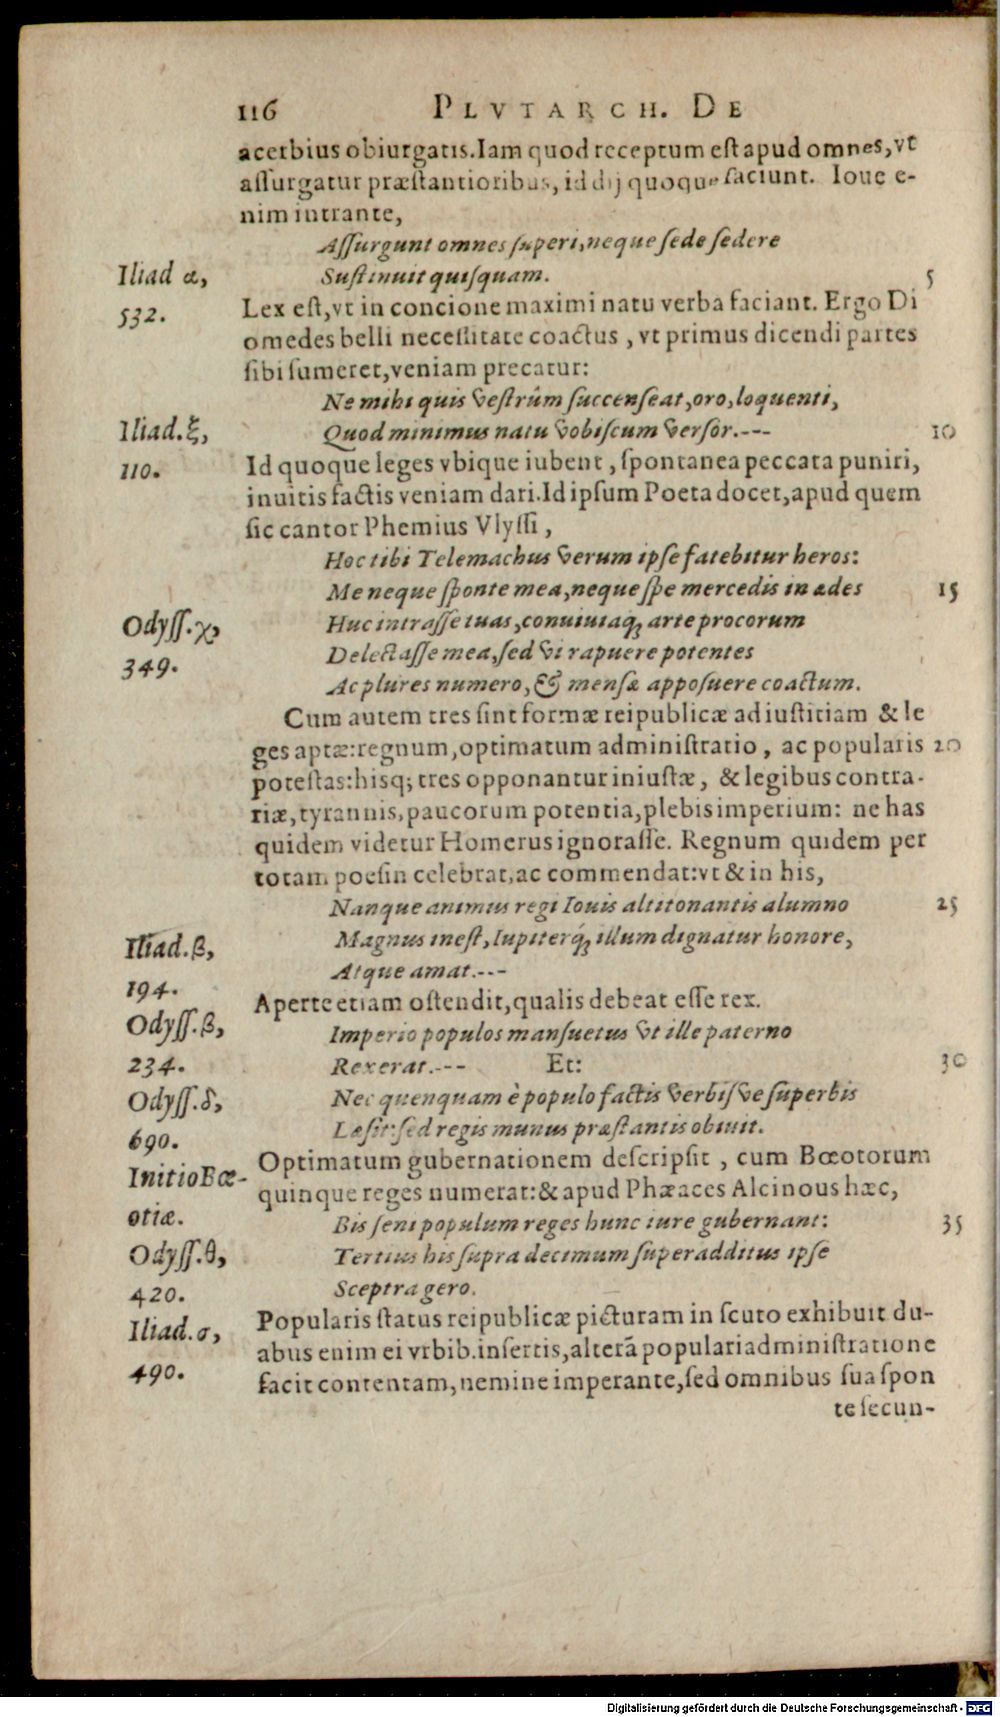 116 PLVTARCH. DE
acerbius obiurgatis. Iam quod receptum est apud omnes, vt
assurgatur præstantioribus, id dij quoque faciunt. Ioue e-
nim intrante,
Assurgunt omnes superi, neque sede sedere
Iliad α, Sustinuit quisquam. 5
532. Lex est, vt in concione maximi natu verba faciant. Ergo Di
omedes belli necessitate coactus, vt primus dicendi partes
sibi sumeret, veniam precatur:
Ne mihi quis vestrûm succenseat, oro, loquenti,
Iliad.ξ, Quod minimus natu vobiscum versor.--- 10
110. Id quoque leges vbique iubent, spontanea peccata puniri,
inuitis factis veniam dari. Id ipsum Poeta docet, apud quem
sic cantor Phemius Vlyssi,
Hoc tibi Telemachus verum ipse fatebitur heros:
Me neque sponte mea, neque spe mercedis in ædes 15
Odyss.χ, Huc intrasse tuas, conuiuiaq; arte procorum
349. Delectasse mea, sed vi rapuere potentes
Ac plures numero, & mensæ apposuere coactum.
Cum autem tres sint formæ reipublicæ ad iustitiam & le
ges aptæ: regnum, optimatum administratio, ac popularis 20
potestas: hisq; tres opponantur iniustæ, & legibus contra-
riæ, tyrannis, paucorum potentia, plebis imperium: ne has
quidem videtur Homerus ignorasse. Regnum quidem per
totam poesin celebrat, ac commendat: vt & in his,
Nanque animus regi Iouis altitonantis alumno 25
Iliad.β, Magnus inest, Iupiterq; illum dignatur honore,
194. Atque amat.---
Aperte etiam ostendit, qualis debeat esse rex.
Odyss.β, Imperio populos mansuetus vt ille paterno
234. Rexerat.--- Et: 30
Odyss.δ, Nec quenquam è populo factis verbisve superbis
690. Læsit: sed regis munus præstantis obiuit.
Initio Bœ- Optimatum gubernationem descripsit, cum Bœotorum
otiæ. quinque reges numerat: & apud Phæaces Alcinous hæc,
Bis seni populum reges hunc iure gubernant: 35
Odyss.θ, Tertius his supra decimum superadditus ipse
420. Sceptra gero.
Iliad.σ, Popularis status reipublicæ picturam in scuto exhibuit du-
abus enim ei vrbib. insertis, alterã populari administratione
490. facit contentam, nemine imperante, sed omnibus sua spon
te secun-
Digitalisierung gefördert durch die Deutsche Forschungsgemeinschaft - DFG